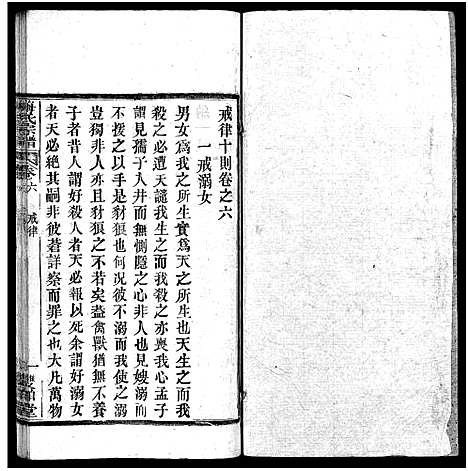 戒律十則卷之六
一戒溺女
男女爲我之所生實爲天之所生也天生之而我
殺之必遭天譴我生之而我殺之亦喪我心孟子
謂見孺子入井而無惻隱之心非人也見嫂溺而
不援之以手是豺狼也何況彼不溺而我使之溺
豈獨非人亦且豺狼之不若矣蓋禽獸猶無不養
子者昔人謂好殺人者天必報以死余謂好溺女
者天必絶其嗣非彼蒼詳察而罪之也大凡萬物
氏宗譜
卷六
戒律
一
堂